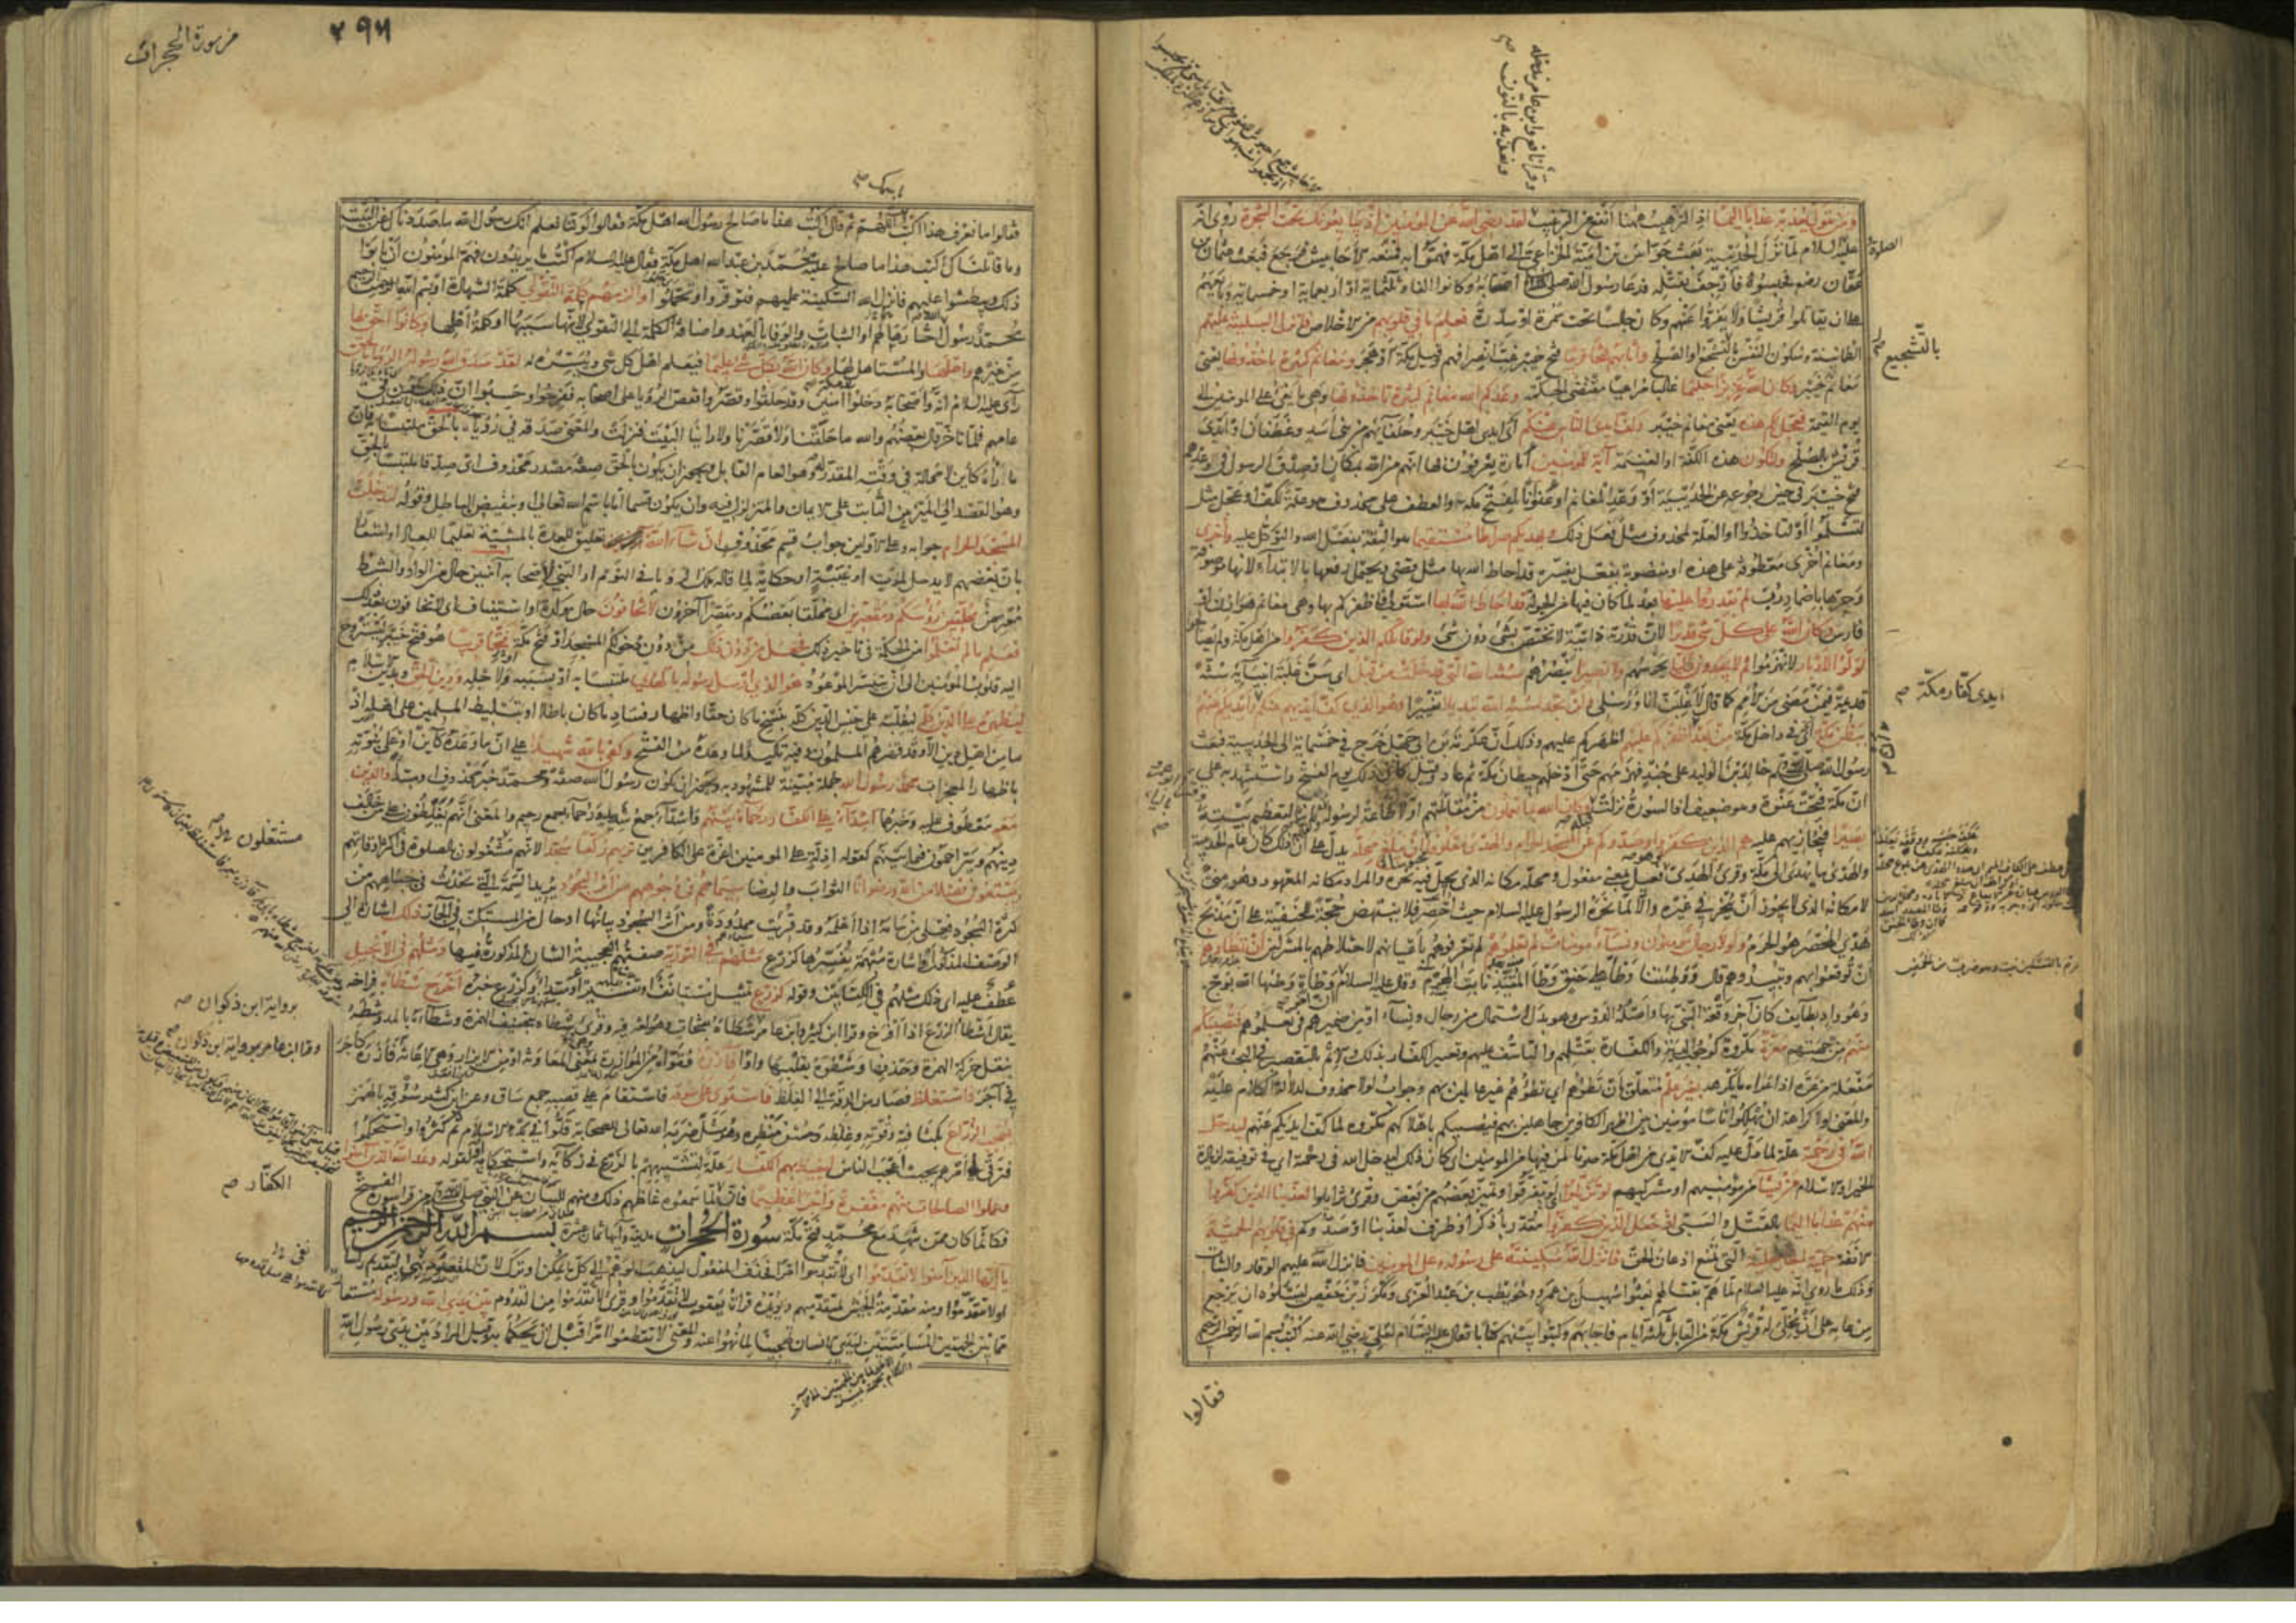 ومن يتول يعذبه عذابا اليما اذ الترهيب ههنا انفع من الترغيب لقد رضى الله عن المؤمنين اذ يبايعونك تحت الشجرة روى انه
عليه السلام لما نزل الحديبية بعث جواس بن امية الخزاعى الى اهل مكة فهموا به فمنعه الاحابيش فرجع فبعث عثمان بن
عفان رضه فحبسوه فارجف بقتله فدعا رسول الله صلى اصحابه وكانوا الفا وثلثماية او اربعماية او خمسماية وبايعهم
على ان يقاتلوا قريشا ولا يفروا عنهم وكان جالسا تحت سمرة او سدرة فعلم ما فى قلوبهم من الاخلاص فانزل السكينة عليهم
الطمانينة وسكون النفس بالتشجيع او الصلح واثابهم فتحا قريبا فتح خيبر غب انصرافهم وقيل مكة او هجر ومغانم كثيرة ياخذونها يعنى
مغانم خيبر وكان الله عزيزا حكيما غالبا مراعيا مقتضى الحكمة وعدكم الله مغانم كثيرة تاخذونها وهى ما يفئ على المؤمنين الى
يوم القيمة فعجل لكم هذه يعنى مغانم خيبر وكف ايدى الناس عنكم اى ايدى اهل خيبر وحلفائهم من بنى اسد وغطفان او ايدى
قريش بالصلح ولتكون هذه الكفة او الغنيمة آية للمؤمنين امارة يعرفون بها انهم من الله بمكان او صدق الرسول فى وعدهم
فتح خيبر فى حين رجوعه عن الحديبية او وعد المغانم او عنوانا لفتح مكة والعطف على محذوف هو علة لكف او عجل مثل
لتسلموا او لتاخذوا او العلة لمحذوف مثل فعل ذلك ويهديكم صراطا مستقيما هو الثقة بفضل الله والتوكل عليه واخرى
ومغانم اخرى معطوفة على هذه او منصوبة بفعل يفسره قد احاط الله بها مثل قضى ويحتمل رفعها بالابتداء لانها موصوفة
وجرها باضمار رب لم تقدروا عليها بعد لما كان فيها من الجولة قد احاط الله بها استولى فاظفركم بها وهى مغانم هوازن او
فارس وكان الله على كل شئ قديرا لان قدرته ذاتية لا تختص بشئ دون شئ ولو قاتلكم الذين كفروا من اهل مكة ولم يصالحوا
لولوا الادبار لانهزموا ثم لا يجدون وليا يحرسهم ولا نصيرا ينصرهم سنة الله التى قد خلت من قبل اى سن غلبة انبيائه سنة
قديمة فيمن مضى من الامم كما قال لاغلبن انا ورسلى ولن تجد لسنة الله تبديلا تغييرا وهو الذى كف ايديهم عنكم وايديكم عنهم
ببطن مكة اى فى داخل مكة من بعد ان اظفركم عليهم اظهركم عليهم وذلك ان عكرمة بن ابى جهل خرج فى خمسماية الى الحديبية فبعث
رسول الله صلى خالد بن الوليد على جند فهزمهم حتى ادخلهم حيطان مكة ثم عاد وقيل كان ذلك يوم الفتح واستشهد به على
ان مكة فتحت عنوة وهو ضعيف اذ السورة نزلت قبله وكان الله بما تعملون من مقاتلتهم اولا طاعة لرسوله وكفهم ثانيا لتعظيم بيته
بصيرا فيجازيهم عليه هم الذين كفروا وصدوكم عن المسجد الحرام والهدى معكوفا ان يبلغ محله يدل على ان ذلك كان عام الحديبية
والهدى ما يهدى الى مكة وقرئ الهدى وهو فعيل بمعنى مفعول ومحله مكانه الذى يحل فيه نحره والمراد مكانه المعهود وهو منى
لا مكانه الذى لا يجوز ان ينحر فى غيره والا لما نحره الرسول عليه السلام حيث احصر فلا ينتهض حجة للحنفية على ان مذبح
هدى المحصر هو الحرم ولولا رجال مؤمنون ونساء مؤمنات لم تعلموهم لم تعرفوهم باعيانهم لاختلاطهم بالمشركين ان تطاوهم
ان توقعوا بهم وتبيدوهم قال ووطئتنا وطأ على حنق وطأ المقيد نابت الهرم وقال عليه السلام ان آخر وطأة وطئها الله بوج
وهو واد بطايف كان آخر وقعة النبى بها واصله الدوس وهو بدل الاشتمال من رجال ونساء او من ضميرهم فى تعلموهم فتصيبكم
منهم من جهتهم معرة مكروه كوجوب الدية والكفارة بقتلهم والتاسف عليهم وتعيير الكفار بذلك والاثم بالتقصير فى البحث عنهم
مفعلة من عره اذا اعراه ما يكرهه بغير علم متعلق ان تطؤهم اى تطؤهم غير عالمين بهم وجواب لولا محذوف لدلالة الكلام عليه
والمعنى لولا كراهة ان تهلكوا اناسا مؤمنين بين اظهر الكافرين جاهلين بهم فيصيبكم باهلاكهم مكروه لما كف ايديكم عنهم ليدخل
الله فى رحمته علة لما دل عليه كف الايدى من اهل مكة صونا لمن فيها من المؤمنين اى كان ذلك ليدخل الله فى رحمته اى فى توفيقه لزيادة
الخير او الاسلام من يشاء من مؤمنيهم او مشركيهم لو تزيلوا لو تفرقوا وتميز بعضهم من بعض وقرئ تزايلوا لعذبنا الذين كفروا
منهم عذابا اليما بالقتل والسبى اذ جعل الذين كفروا مقدر باذكر او ظرف لعذبنا او صدوكم فى قلوبهم الحمية
الانفة حمية الجاهلية التى تمنع اذعان الحق فانزل الله سكينته على رسوله وعلى المؤمنين فانزل الله عليهم الوقار والثبات
وذلك ما روى انه عليه السلام لما هم بقتالهم بعثوا سهيل بن عمرو وحويطب بن عبد العزى ومكرز بن حفص ليسئلوه ان يرجع
من عامه على ان يخلى له قريش مكة من القابل ثلثة ايام فاجابهم وكتبوا بينهم كتابا فقال عليه السلام لعلى رضى الله عنه اكتب بسم الله الرحمن الرحيم
فقالوا
الصلوة
بالتشجيع صح
ايدى كفار مكة صح
وقرأ نافع وابن عامر ندخله
ونعذبه بالنون صح
من سورة الحجرات
٢٩٦
باسمك صح
فقالوا ما نعرف هذا اكتب باسمك اللهم ثم قال اكتب هذا ما صالح رسول الله اهل مكة فقالوا لو كنا نعلم انك رسول الله ما صددناك عن البيت
وما قاتلناك اكتب هذا ما صالح عليه محمد بن عبد الله اهل مكة فقال عليه السلام اكتب ما يريدون فهم المؤمنون ان يابوا
ذلك ويبطشوا عليهم فانزل الله السكينة عليهم فتوقروا وتحملوا والزمهم كلمة التقوى كلمة الشهادة او بسم الله الرحمن الرحيم
محمد رسول الله اختارها لهم او الثبات والوفاء بالعهد واضافة الكلمة الى التقوى لانها سببها او كلمة اهلها وكانوا احق بها
من غيرهم واهلها والمستاهل لها وكان الله بكل شئ عليما فيعلم اهل كل شئ وييسره له لقد صدق الله رسوله الرؤيا
رأى عليه السلام انه واصحابه دخلوا مكة آمنين وقد حلقوا وقصروا فقص الرؤيا على اصحابه ففرحوا وحسبوا ان ذلك يكون فى
عامهم فلما تاخر قال بعضهم والله ما حلقنا ولا قصرنا ولا راينا البيت فنزلت والمعنى صدقه فى رؤياه بالحق ملتبسا به فان
ما اراه كاين لا محالة فى وقته المقدر له وهو العام القابل ويجوز ان يكون بالحق صفة مصدر محذوف اى صدقا ملتبسا بالحق
وهو القصد الى التمييز بين الثابت على الايمان والمتزلزل فيه وان يكون قسما اما باسم الله تعالى او بنقيض الباطل وقوله لتدخلن
المسجد الحرام جوابه وعلى الاولين جواب قسم محذوف ان شاء الله تعليق للعدة بالمشيئة تعليما للعباد او اشعارا
بان بعضهم لا يدخل لموت او غيبة او حكاية لما قاله ملك الرؤيا فى النوم او النبى لاصحابه آمنين حال من الواو والشرط
معترض محلقين رؤسكم ومقصرين اى محلقا بعضكم ومقصرا آخرون لا تخافون حال مؤكدة او استيناف اى لا تخافون بعد ذلك
فعلم ما لم تعلموا من الحكمة فى تاخير ذلك فجعل من دون ذلك من دون دخولكم المسجد او فتح مكة فتحا قريبا هو فتح خيبر ليستروح
اليه قلوب المؤمنين الى ان يتيسر الموعود هو الذى ارسل رسوله بالهدى ملتبسا به او بسببه ولاجله ودين الحق وبدين الاسلام
ليظهره على الدين كله ليغلبه على جنس الدين كله بنسخ ما كان حقا واظهار فساد ما كان باطلا او بتسليط المسلمين على اهله اذ
ما من اهل دين الا وقد قهرهم المسلمون وفيه تاكيد لما وعده من الفتح وكفى بالله شهيدا على ان ما وعده كاين او على نبوته
باظهار المعجزات محمد رسول الله جملة مبينة للمشهود به ويجوز ان يكون رسول الله صفة ومحمد خبر محذوف او مبتدا والذين
معه معطوف عليه وخبرهما اشداء على الكفار رحماء بينهم واشداء جمع شديد ورحماء جمع رحيم والمعنى انهم يغلظون على من خالف
دينهم ويتراحمون فيما بينهم كقوله اذلة على المؤمنين اعزة على الكافرين تريهم ركعا سجدا لانهم مشغولون بالصلوة فى اكثر اوقاتهم
يبتغون فضلا من الله ورضوانا الثواب والرضا سيماهم فى وجوههم من اثر السجود يريد السمة التى تحدث فى جباههم من
كثرة السجود فعلى من سامه اذا اعلمه وقد قرئت ممدودة ومن اثر السجود بيانها او حال من المستكن فى الجار ذلك اشارة الى
الوصف المذكور او اشارة مبهمة يفسرها كزرع مثلهم فى التورية صفتهم العجيبة الشان المذكورة فيها ومثلهم فى الانجيل
عطف عليه اى ذلك مثلهم فى الكتابين وقوله كزرع تمثيل مستانف او تفسير او مبتدا وكزرع خبره اخرج شطأه فراخه
يقال اشطأ الزرع اذا افرخ وقرأ ابن كثير وابن عامر شطأه بفتحات وهو لغة فيه وقرئ شطاه بتخفيف الهمزة وشطاءه بالمد وشطه
بنقل حركة الهمزة وحذفها وشطوه بقلبها واوا فآزره فقواه من الموازرة بمعنى المعاونة او من الايزار وهى الاعانة فازره كآجر
فى آجر فاستغلظ فصار من الدقة الى الغلظ فاستوى على سوقه فاستقام على قصبه جمع ساق وعن ابن كثير سؤقه بالهمز
يعجب الزراع بكثافته وقوته وغلظه وحسن منظره وهو مثل ضربه الله تعالى للصحابة قلوا فى بدء الاسلام ثم كثروا واستحكموا
فترقى امرهم بحيث اعجب الناس ليغيظ بهم الكفار علة لتشبيههم بالزرع فى زكائه واستحكامه او لقوله وعد الله الذين آمنوا
وعملوا الصالحات منهم مغفرة واجرا عظيما فان الكفار لما سمعوه غاظهم ذلك ومنهم للبيان عن النبى صلى من قرأ سورة الفتح
فكانما كان ممن شهد مع محمد فتح مكة سورة الحجرات مدنية وآيها ثمان عشرة بسم الله الرحمن الرحيم
يا ايها الذين آمنوا لا تقدموا اى لا تقدموا امرا فحذف المفعول ليذهب الوهم الى كل ما يمكن او ترك لان المقصود نفى التقديم راسا
او لا تتقدموا ومنه مقدمة الجيش لمتقدميهم ويؤيده قراءة يعقوب لا تقدموا وقرئ لا تقدموا من القدوم بين يدى الله ورسوله مستعار
مما بين الجهتين المسامتتين ليدى الانسان تهجينا لما نهوا عنه والمعنى لا تقطعوا امرا قبل ان يحكما به وقيل المراد بين يدى رسول الله
مشتغلون صح
برواية ابن ذكوان صح
وقرأ ابن عامر برواية ابن ذكوان
الكفار صح
نفى